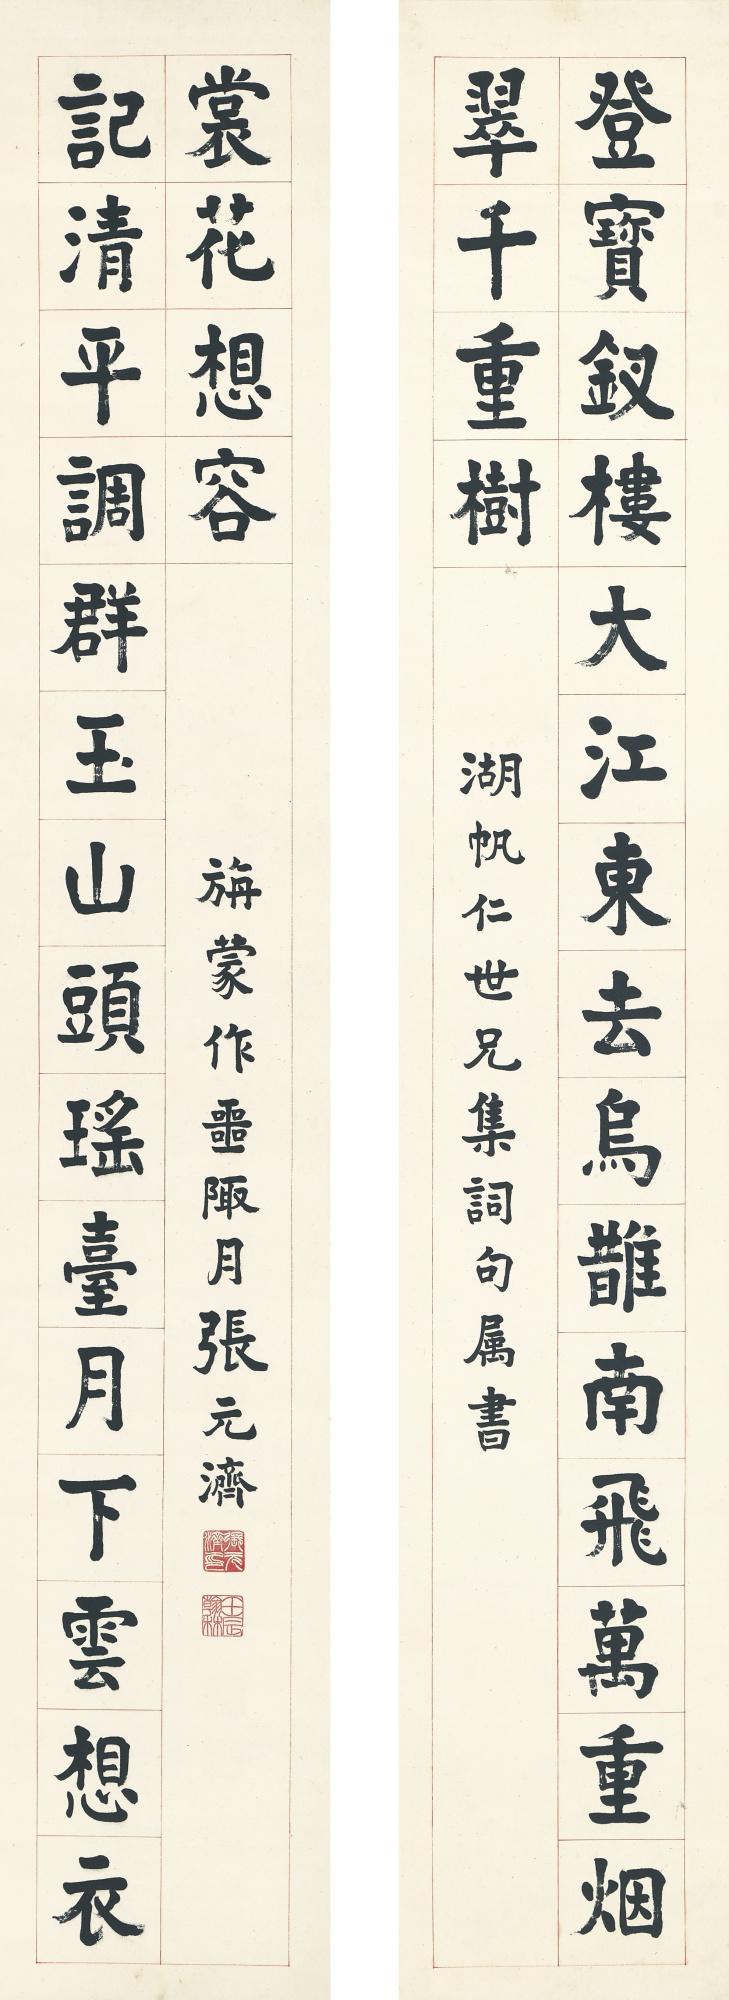 登寶釵樓大江東去烏䧿南飛萬重烟
翠千重樹
湖帆仁世兄集詞句属書
記清平調群玉山頭瑤臺月下雲想衣
裳花想容
旃蒙作噩陬月張元濟
張元濟印
壬辰翰林